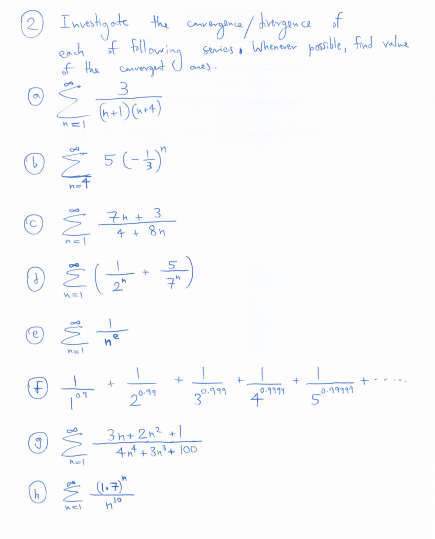 ② Investigate the convergence/divergence of
each of following series. Whenever possible, find value
of the convergent ones.
ⓐ ∑_{n=1}^{∞} 3/((n+1)(n+4))
ⓑ ∑_{n=4}^{∞} 5(-1/3)^n
ⓒ ∑_{n=1}^{∞} (7n + 3)/(4 + 8n)
ⓓ ∑_{n=1}^{∞} (1/2^n + 5/7^n)
ⓔ ∑_{n=1}^{∞} 1/n^e
ⓕ 1/1^{0.9} + 1/2^{0.99} + 1/3^{0.999} + 1/4^{0.9999} + 1/5^{0.99999} + ·····
ⓖ ∑_{n=1}^{∞} (3n + 2n² + 1)/(4n⁴ + 3n³ + 100)
ⓗ ∑_{n=1}^{∞} (1.7)^n/n^{10}